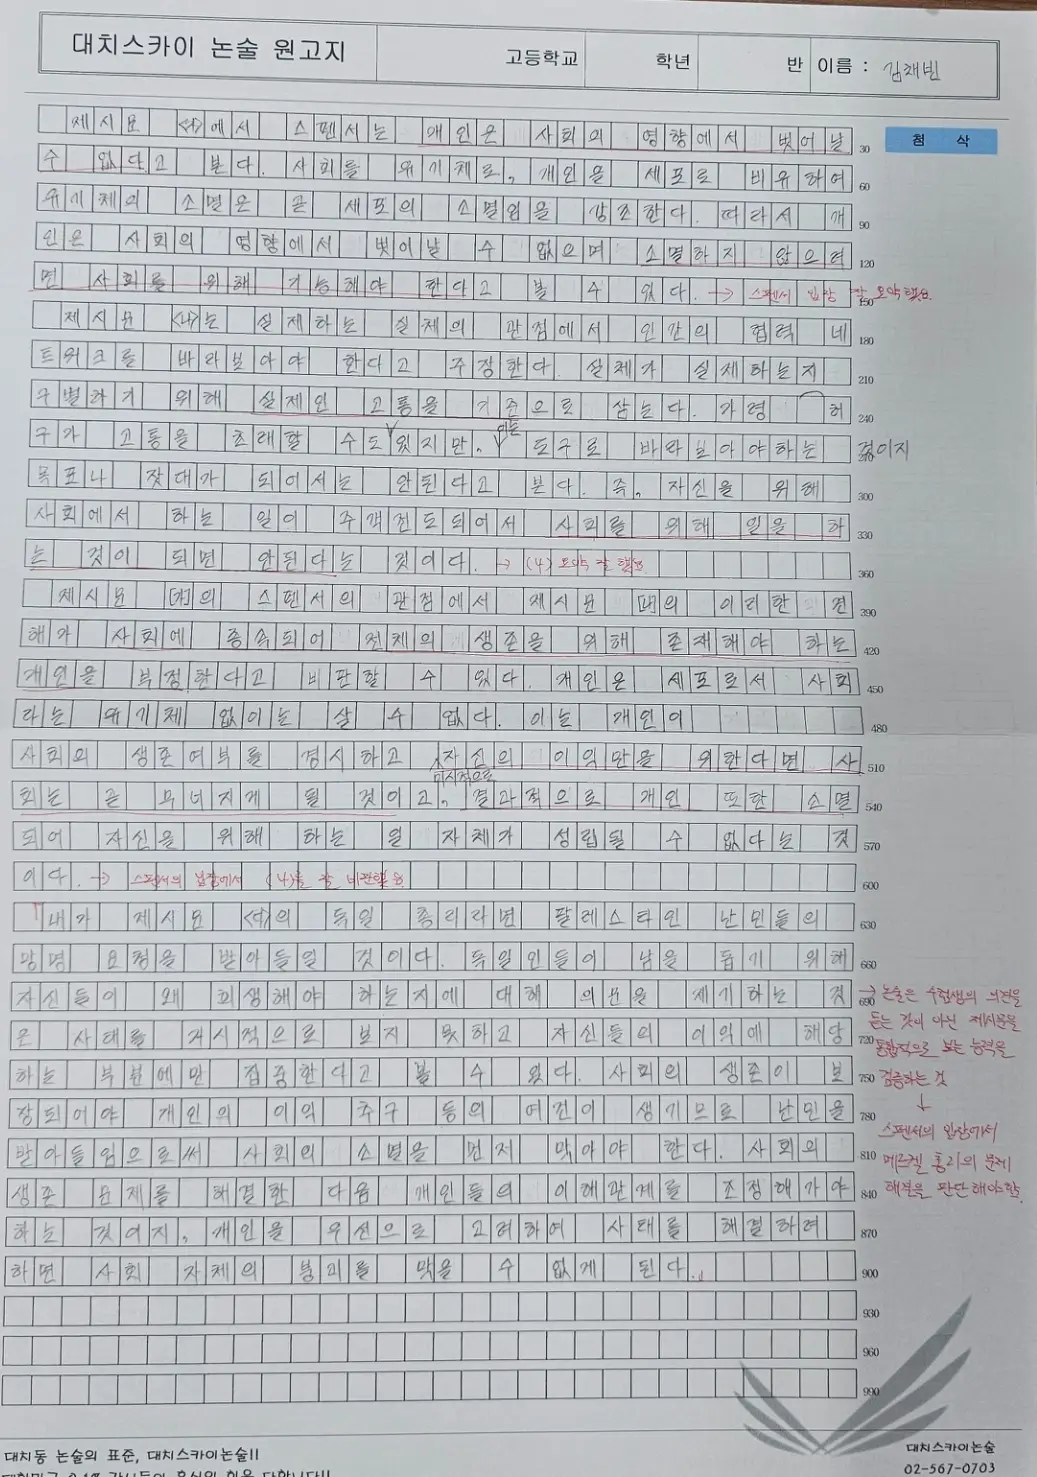 대치스카이 논술 원고지 고등학교 학년 반 이름 : 김채빈
첨 삭
제시문 <가>에서 스펜서는 개인은 사회의 영향에서 벗어날 30
수 없다고 본다. 사회를 유기체로, 개인을 세포로 비유하여 60
유기체의 소멸은 곧 세포의 소멸임을 강조한다. 따라서 개 90
인은 사회의 영향에서 벗어날 수 없으며 소멸하지 않으려 120
면 사회를 위해 기능해야 한다고 볼 수 있다. → 스펜서 입장 잘 요약했음. 150
제시문 <나>는 실재하는 실체의 관점에서 인간의 협력 네 180
트워크를 바라보아야 한다고 주장한다. 실체가 실재하는지 210
구별하기 위해 실제인 고통을 기준으로 삼는다. 가령 허 240
구가 고통을 초래할 수도 있지만, 이는 도구로 바라보아야하는 것이지
목표나 잣대가 되어서는 안된다고 본다. 즉, 자신을 위해 300
사회에서 하는 일이 주객전도되어서 사회를 위해 일을 하 330
는 것이 되면 안된다는 것이다. → (나) 요약 잘 했음 360
제시문 [가]의 스펜서의 관점에서 제시문 [나]의 이러한 견 390
해가 사회에 종속되어 전체의 생존을 위해 존재해야 하는 420
개인을 부정한다고 비판할 수 있다. 개인은 세포로서 사회 450
라는 유기체 없이는 살 수 없다. 이는 개인이 480
사회의 생존여부를 경시하고 미시적으로 자신의 이익만을 위한다면 사 510
회는 곧 무너지게 될 것이고, 결과적으로 개인 또한 소멸 540
되어 자신을 위해 하는 일 자체가 성립될 수 없다는 것 570
이다. → 스펜서의 입장에서 (나)를 잘 비판했음 600
내가 제시문 <다>의 독일 총리라면 팔레스타인 난민들의 630
망명 요청을 받아들일 것이다. 독일인들이 남을 돕기 위해 660
자신들이 왜 희생해야 하는지에 대해 의문을 제기하는 것 690
은 사태를 거시적으로 보지 못하고 자신들의 이익에 해당 720
하는 부분에만 집중한다고 볼 수 있다. 사회의 생존이 보 750
장되어야 개인의 이익 추구 등의 여건이 생기므로 난민을 780
받아들임으로써 사회의 소멸을 먼저 막아야 한다. 사회의 810
생존 문제를 해결한 다음 개인들의 이해관계를 조정해가야 840
하는 것이지, 개인을 우선으로 고려하여 사태를 해결하려 870
하면 사회 자체의 붕괴를 막을 수 없게 된다. 900
930
960
990
→ 논술은 수험생의 의견을
듣는 것이 아닌 제시문을
통합적으로 보는 능력을
검증하는 것
↓
스펜서의 입장에서
메르켈 총리의 문제
해결을 판단해야 함.
대치동 논술의 표준, 대치스카이논술!!
대치스카이논술
02-567-0703